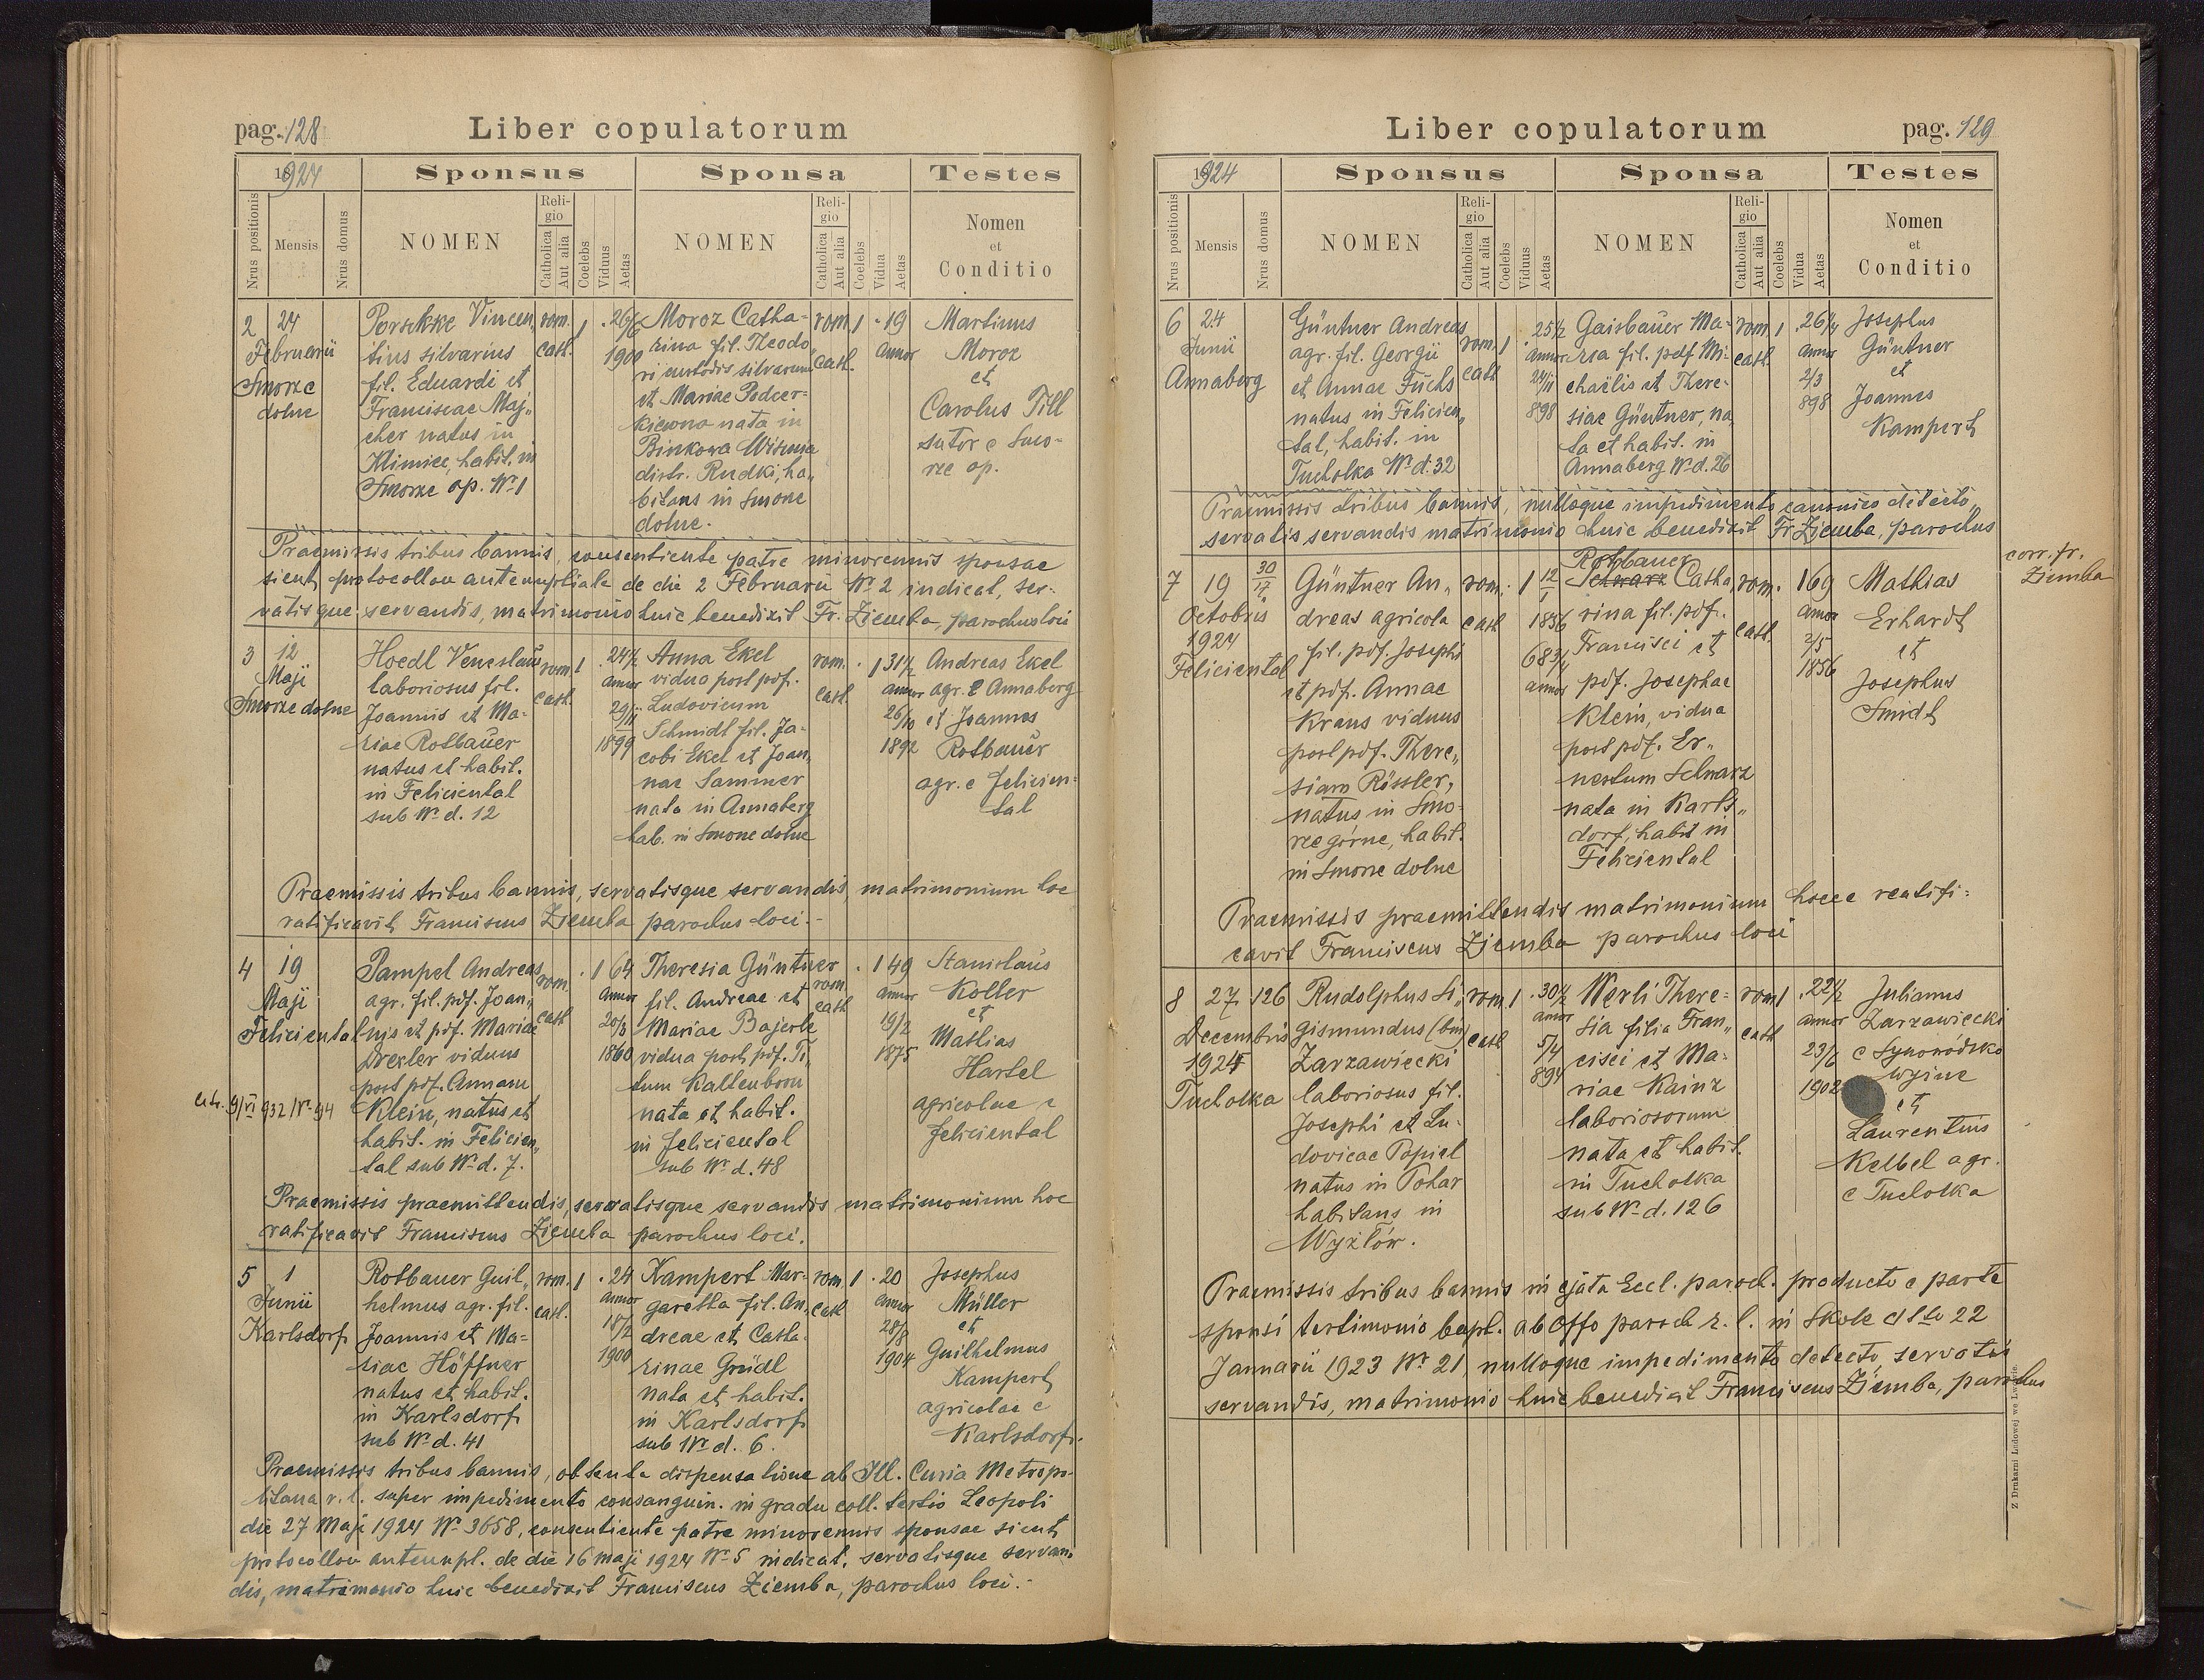 pag. 128
Liber copulatorum
1924
Sponsus
Sponsa
Testes
Nrus positionis
Mensis
Nrus domus
NOMEN
Religio
Catholica
Aut alia
Coelebs
Viduus
Aetas
NOMEN
Religio
Catholica
Aut alia
Coelebs
Vidua
Aetas
Nomen
et
Conditio
2
24
Februarii
Smorze
dolne
Porsekke Vincen„
tius silvarius
fil. Eduardi et
Franciscae Maj„
cher natus in
Klimiec, habit. in
Smorze op. Nr 1
rom.
cath.
1
1900
Moroz Catha-
rina fil. Theodo„
ri custodis silvarum
et Mariae Podcer-
kiewna nata in
Binkowa Wisznia
distr. Rudki, ha„
bitans in Smorze
dolne.
rom.
cath.
1
19
annor
Martinus
Moroz
et
Carolus Till
sutor e Smo-
rze op.
Praemissis tribus bannis, consentiente patre minorennis sponsae
sicut protocollon antenuptiale de die 2 Februarii Nr 2 indicat, ser-
vatisque servandis, matrimonio huic benedixit Fr. Ziemba, parochus loci
3
12
Maji
Smorze dolne
Hoedl Venceslaus
laboriosus fil.
Joannis et Ma-
riae Rotbauer
natus et habit.
in Feliciental
sub Nr d. 12
rom.
cath.
1
24 1/2
annor
29/11
1899
Anna Ekel
vidua post pdf.
Ludovicum
Schmidt fil. Ja-
cobi Ekel et Joan„
nae Sammer
nata in Annaberg
hab. in Smorze dolne
rom.
cath.
1
31 1/2
annor
26/10
1892
Andreas Ekel
agr. e Annaberg
et Joannes
Rotbauer
agr. e Felicien-
tal
Praemissis tribus bannis, servatisque servandis, matrimonium hoc
ratificavit Franciscus Ziemba parochus loci.-
4
19
Maji
Feliciental
Pampel Andreas
agr. fil. pdf. Joan„
nis et pdf. Mariae
Drexler viduus
post pdf. Annam
Klein, natus et
habit. in Felicien„
tal sub Nr d. 7.
rom.
cath
1
64
annor
20/3
1860
Theresia Güntner
fil. Andreae et
Mariae Bajerle
vidua post pdf. Ti„
tum Kaltenborn
nata et habit.
in Feliciental
sub Nr d. 48
rom.
cath
1
49
annor
19/2
1875
Stanislaus
Koller
et
Mathias
Hartel
agricolae e
Feliciental
9/VI 932 / Nr 94
Praemissis praemittendis, servatisque servandis matrimonium hoc
ratificavit Franciscus Ziemba parochus loci.
5
1
Junii
Karlsdorf
Rotbauer Guil„
helmus agr. fil.
Joannis et Ma-
riae Höffner
natus et habit.
in Karlsdorf
sub Nr d. 41
rom.
cath.
1
24
annor
18/2
1900
Kampert Mar-
garetha fil. An„
dreae et Catha-
rinae Grüdl
nata et habit.
in Karlsdorf
sub Nr d. 6.
rom.
cath
1
20
annor
28/8
1904
Josephus
Müller
et
Guilhelmus
Kampert
agricolae e
Karlsdorf.
Praemissis tribus bannis, obtenta dispensatione ab Ill. Curia Metropo-
litana r. l. super impedimento consanguin. in gradu coll. tertio Leopoli
die 27 Maji 1924 Nr 3658, consentiente patre minorennis sponsae sicut
protocollon antenupt. de die 16 maji 1924 Nr 5 indicat, servatisque servan„
dis, matrimonio huic benedixit Franciscus Ziemba, parochus loci.-
Liber copulatorum
pag. 129
1924
Sponsus
Sponsa
Testes
Nrus positionis
Mensis
Nrus domus
NOMEN
Religio
Catholica
Aut alia
Coelebs
Viduus
Aetas
NOMEN
Religio
Catholica
Aut alia
Coelebs
Vidua
Aetas
Nomen
et
Conditio
6
24
Junii
Annaberg
Güntner Andreas
agr. fil. Georgii
et Annae Fuchs
natus in Felicien„
tal, habit. in
Tucholka Nr d. 32
rom.
cath
1
25 1/2
annor
24/11
898
Gaisbauer Ma-
ria fil. pdf. Mi-
chaëlis et There-
siae Güntner, na„
ta et habit. in
Annaberg Nr d. 26
rom.
cath.
1
26 1/4
annor
2/3
898
Josephus
Güntner
et
Joannes
Kampert
Praemissis tribus bannis, nulloque impedimento canonico detecto,
servatis servandis matrimonio huic benedixit Fr Ziemba, parochus
7
19
30
17
Octobris
1924
Feliciental
Güntner An„
dreas agricola
fil. pdf. Josephi
et pdf. Annae
Kraus viduus
post pdf. There„
siam Rössler,
natus in Smo-
rze górne, habit.
in Smorze dolne
rom.
cath
1
12
1
1856
68 3/4
annor
Rotbauer
Schwarz Catha„
rina fil. pdf.
Francisci et
pdf. Josephae
Klein, vidua
post pdf. Er„
nestum Schwarz
nata in Karls„
dorf, habit in
Feliciental
rom.
cath.
1
69
annor
2/5
1856
Mathias
Erhardt
et
Josephus
Smidt
corr. fr.
Ziemba
Praemissis praemittendis matrimonium hocce reatifi-
cavit Franciscus Ziemba parochus loci
8
27
126
Decembris
1924
Tucholka
Rudolphus Si„
gismundus (bin)
Zarzawiecki
laboriosus fil.
Josephi et Lu-
dovicae Popiel
natus in Pohar
habitans in
Wyżłów.
rom.
cath
1
30 1/2
annor
5/4
894
Werli There-
sia filia Fran„
cisci et Ma-
riae Kainz
laboriosorum
nata et habit.
in Tucholka
sub Nr d. 126
rom.
cath
1
22 1/2
annor
23/6
1902
Julianus
Zarzawiecki
e Synowódsko
wyżne
et
Laurentius
Kelbel agr.
e Tucholka
Praemissis tribus bannis in Eccl. paroch. producto e parte
sponsi testimonio bapt. ab Offo paroch r. l. in Skole dtto 22
Januarii 1923 Nr 21, nulloque impedimento detecto, servatis
servandis, matrimonio huic benedixit Franciscus Ziemba, parochus
Z Drukarni Ludowej we Lwowie.